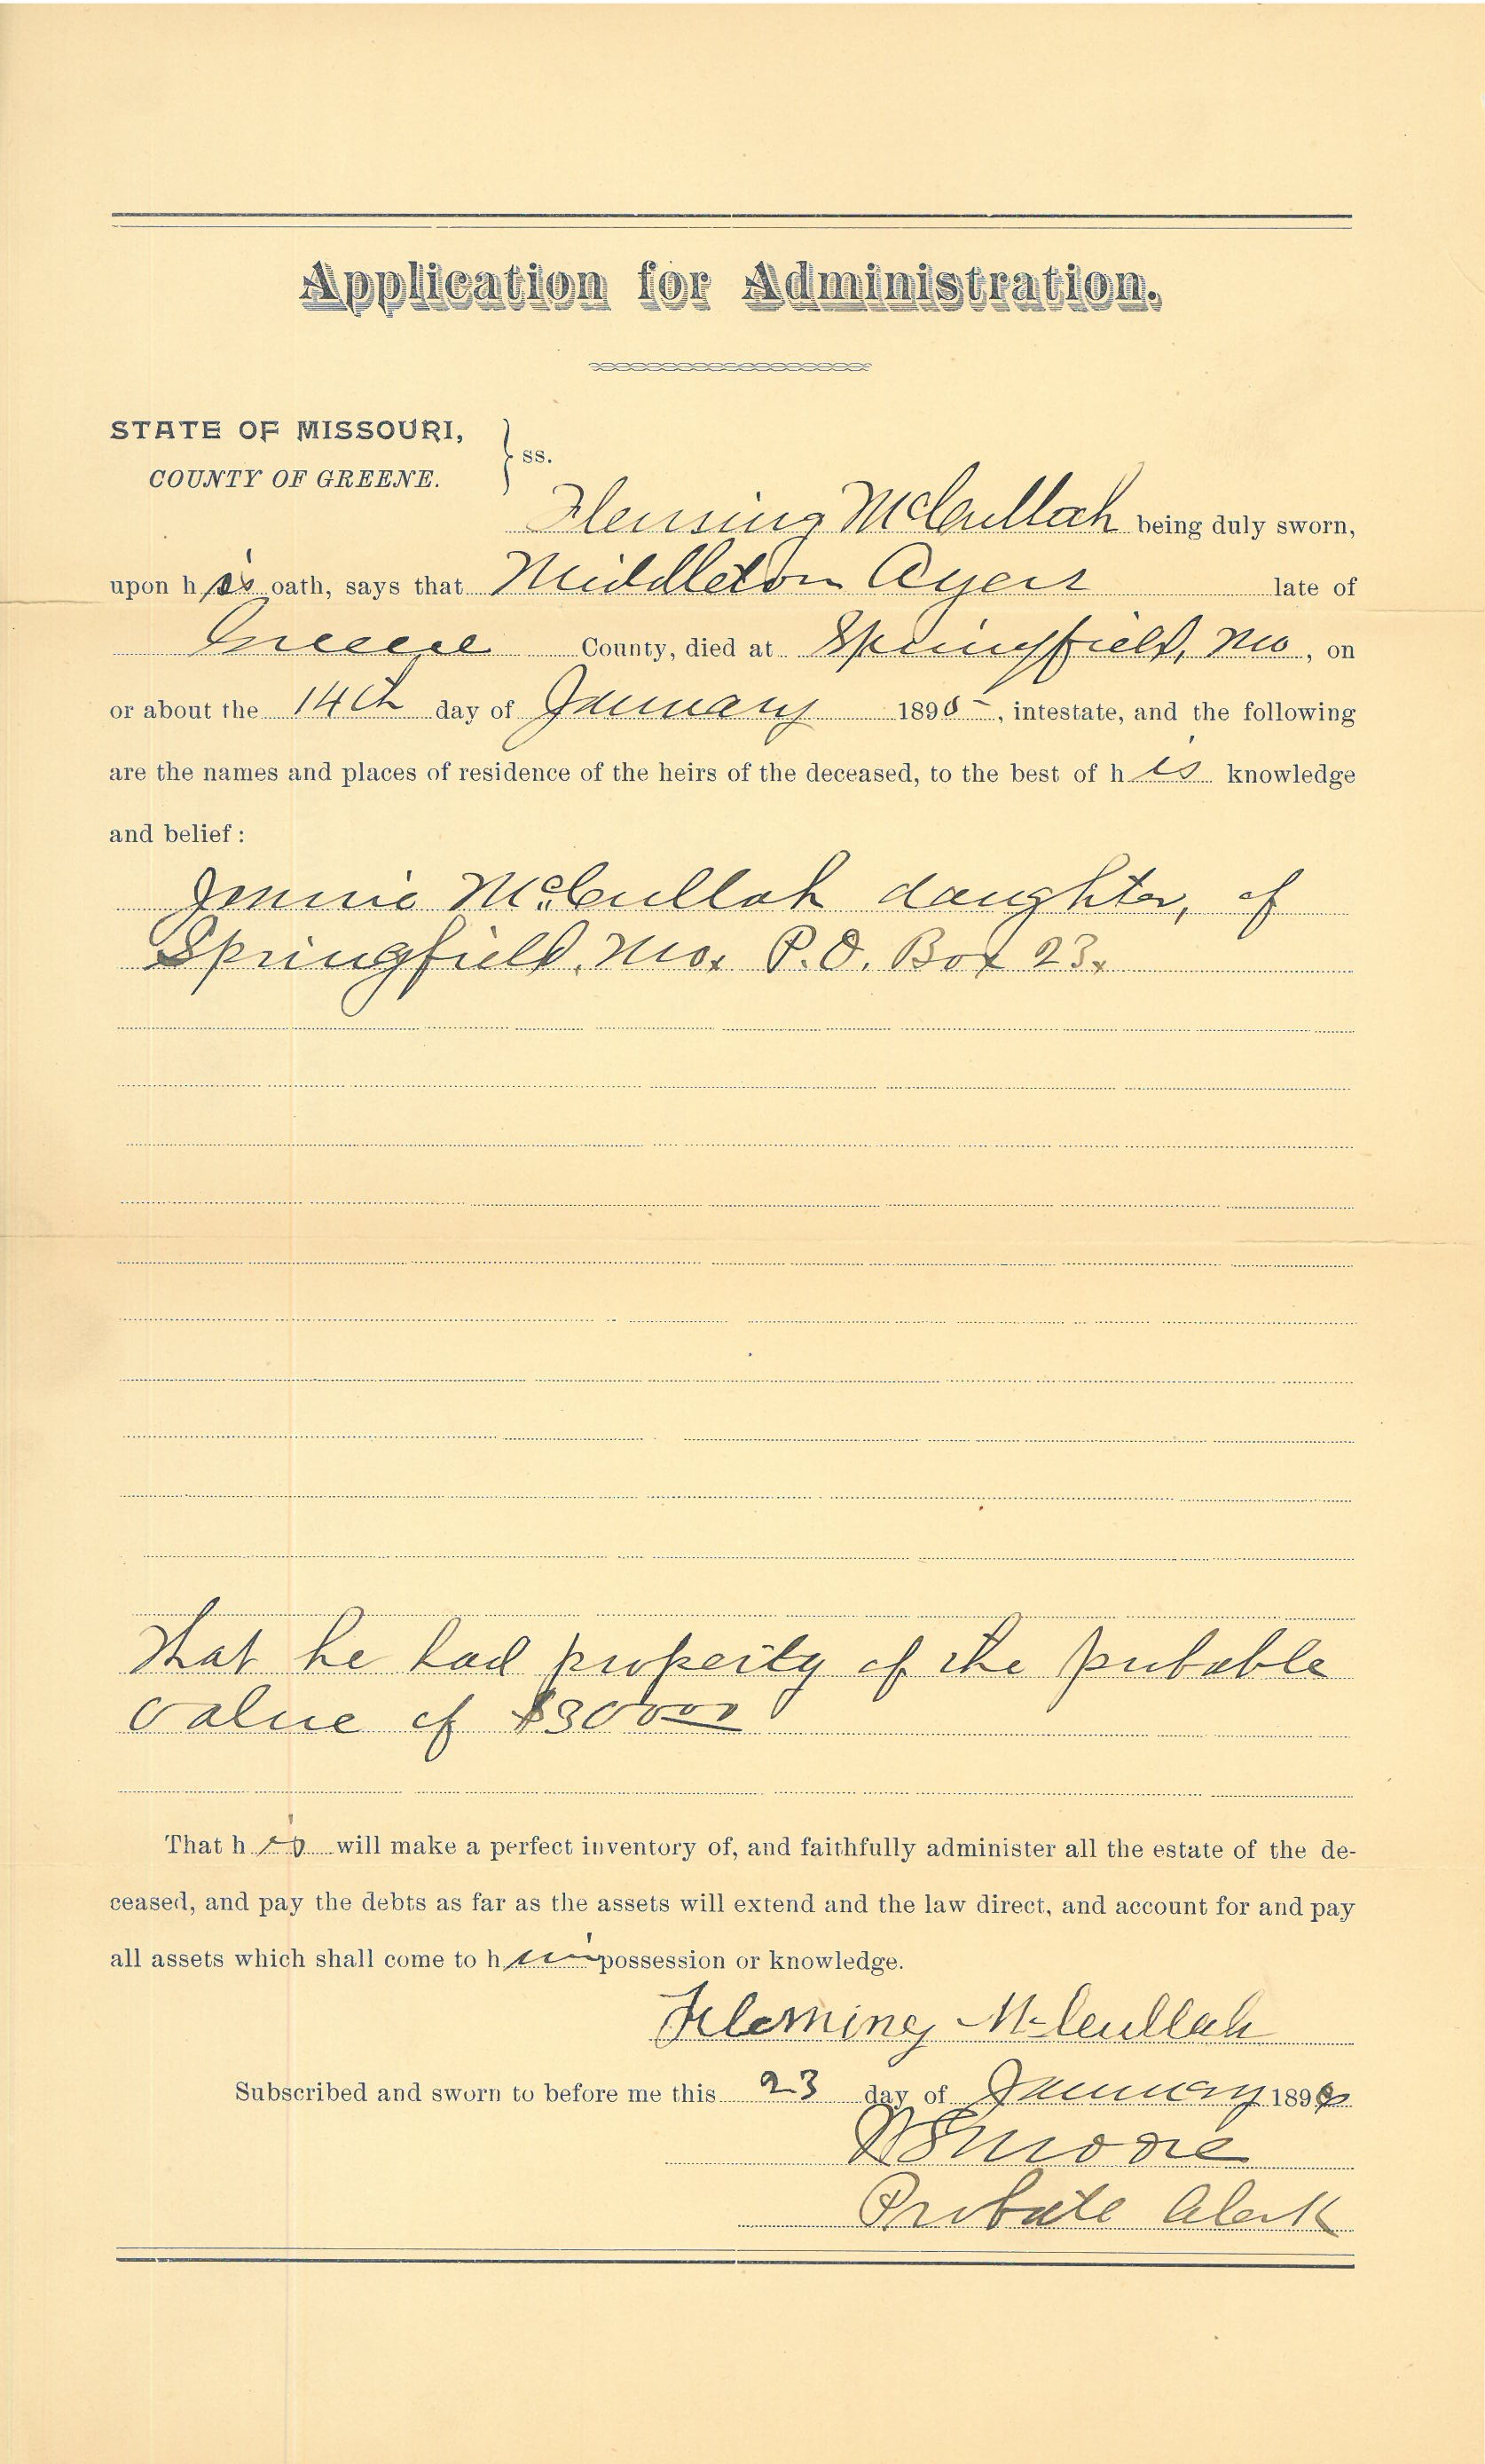 Application for Administration.
STATE OF MISSOURI,
COUNTY OF GREENE. } ss.
Flemming McCulloch being duly sworn,
upon his oath, says that Middleton Ayers late of
Greene County, died at Springfield, Mo, on
or about the 14th day of January 189 , intestate, and the following
are the names and places of residence of the heirs of the deceased, to the best of his knowledge
and belief:
Jennie McCulloh daughter, of
Springfield, Mo. P.O. Box 23.
that he had property of the probable
value of
That h will make a perfect inventory of, and faithfully administer all the estate of the de-
ceased, and pay the debts as far as the assets will extend and the law direct, and account for and pay
all assets which shall come to h possession or knowledge.
Fleming McCulloh
Subscribed and sworn to before me this 23 day of January 189
Moore
Probate Clerk